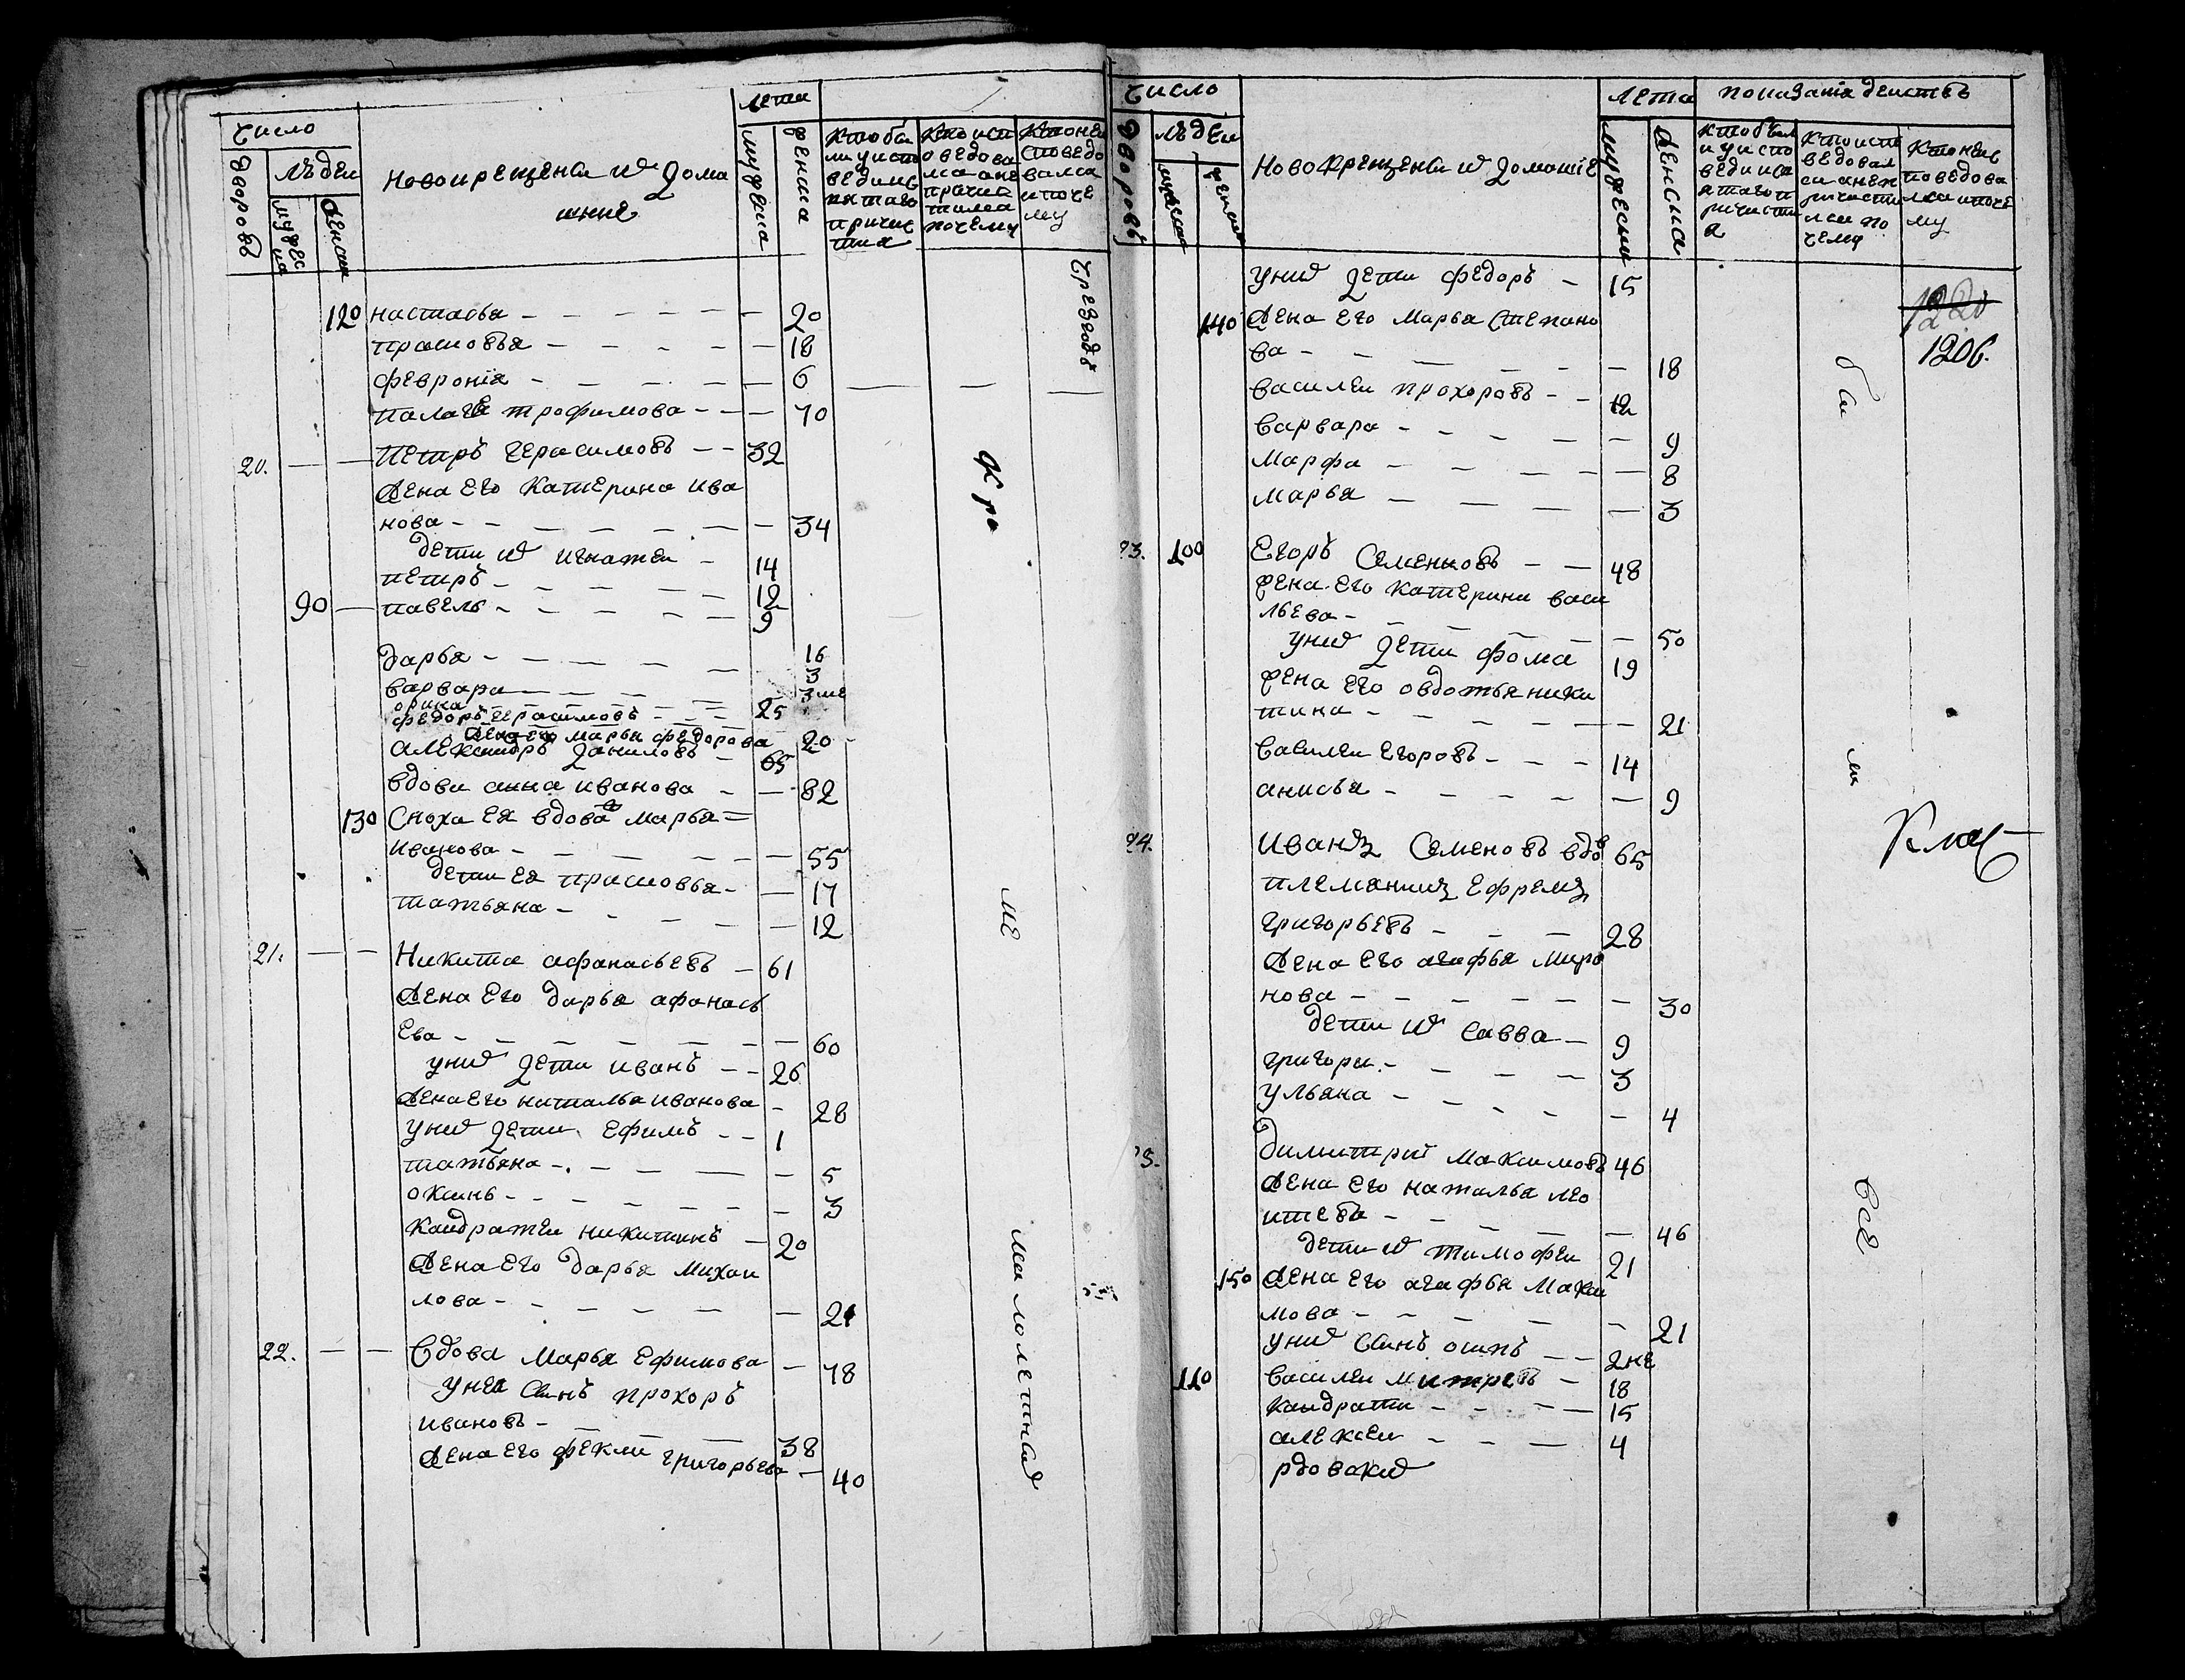 Число
людеи
дворовъ
мужеска
женска
новокрещены и домашние
лета
мужеска
женска
кто был и у исповеди и святаго причастия
кто исповедовался а не причастился и почему
кто не исповедовался и почему
120 настасья - 20
прасковья - 18
феврония - 6
палагея трофимова - 70
20. Петръ герасимовъ - 32
жена его катерина ива
нова - 34
дети их игнатеи - 14
петръ - 12
90 павелъ - 9
дарья - 16
варвара - 3
орина - 3
федоръ герасимовъ - 25
жена его марья федорова 20
александръ даниловъ - 65
вдова анна иванова - 82
130 Сноха ея вдова марья
иванова - 55
дети ея прасковья - 17
татьяна - 12
21. Никита афанасьевъ - 61
жена его дарья афанась
ева - 60
у них дети иванъ - 26
жена его наталья иванова - 28
у них дети ефимъ - 1
татьяна - 5
оксинь - 3
кандратеи никитинъ - 20
жена его дарья михаи
лова - 21
22. Вдова марья ефимова - 78
у нея сынъ прохоръ
ивановъ - 38
жена его фекла григорьева - 40
чрез годъ
кро
ме
малолетных
Число
дворовъ
людеи
мужеска
женска
Новокрещены и домашние
лета
мужески
женска
показания деиствъ
кто был и у исповеди и святаго причастия
кто исповедовался а не причастился и почему
кто не исповедовался и почему
у них дети федоръ - 15
140 жена его марья степано
ва - 18
василеи прохоровъ - 12
варвара - 9
марфа - 8
марья - 3
23. 100 Егоръ Семеновъ - 48
жена его катерина васи
льева - 50
у них дети фома 19
жена его овдотья ники
тина - 21
василеи егоровъ - 14
анисья - 9
24. Иванъ Семеновъ вдов 65
племянникъ ефремъ
григорьевъ - 28
жена его агафья миро
нова - 30
дети их савва - 9
григореи - 3
ульяна - 4
25. Димитрии максимовъ 46
жена его наталья лео
нтева - 46
дети их тимофеи 21
150 жена его агафья макси
мова - 21
у них сынъ осипъ - 2 не
110 василеи митревъ - 18
кандратеи - 15
алексеи - 4
рдовских
1220
1206.
бы
ли
все